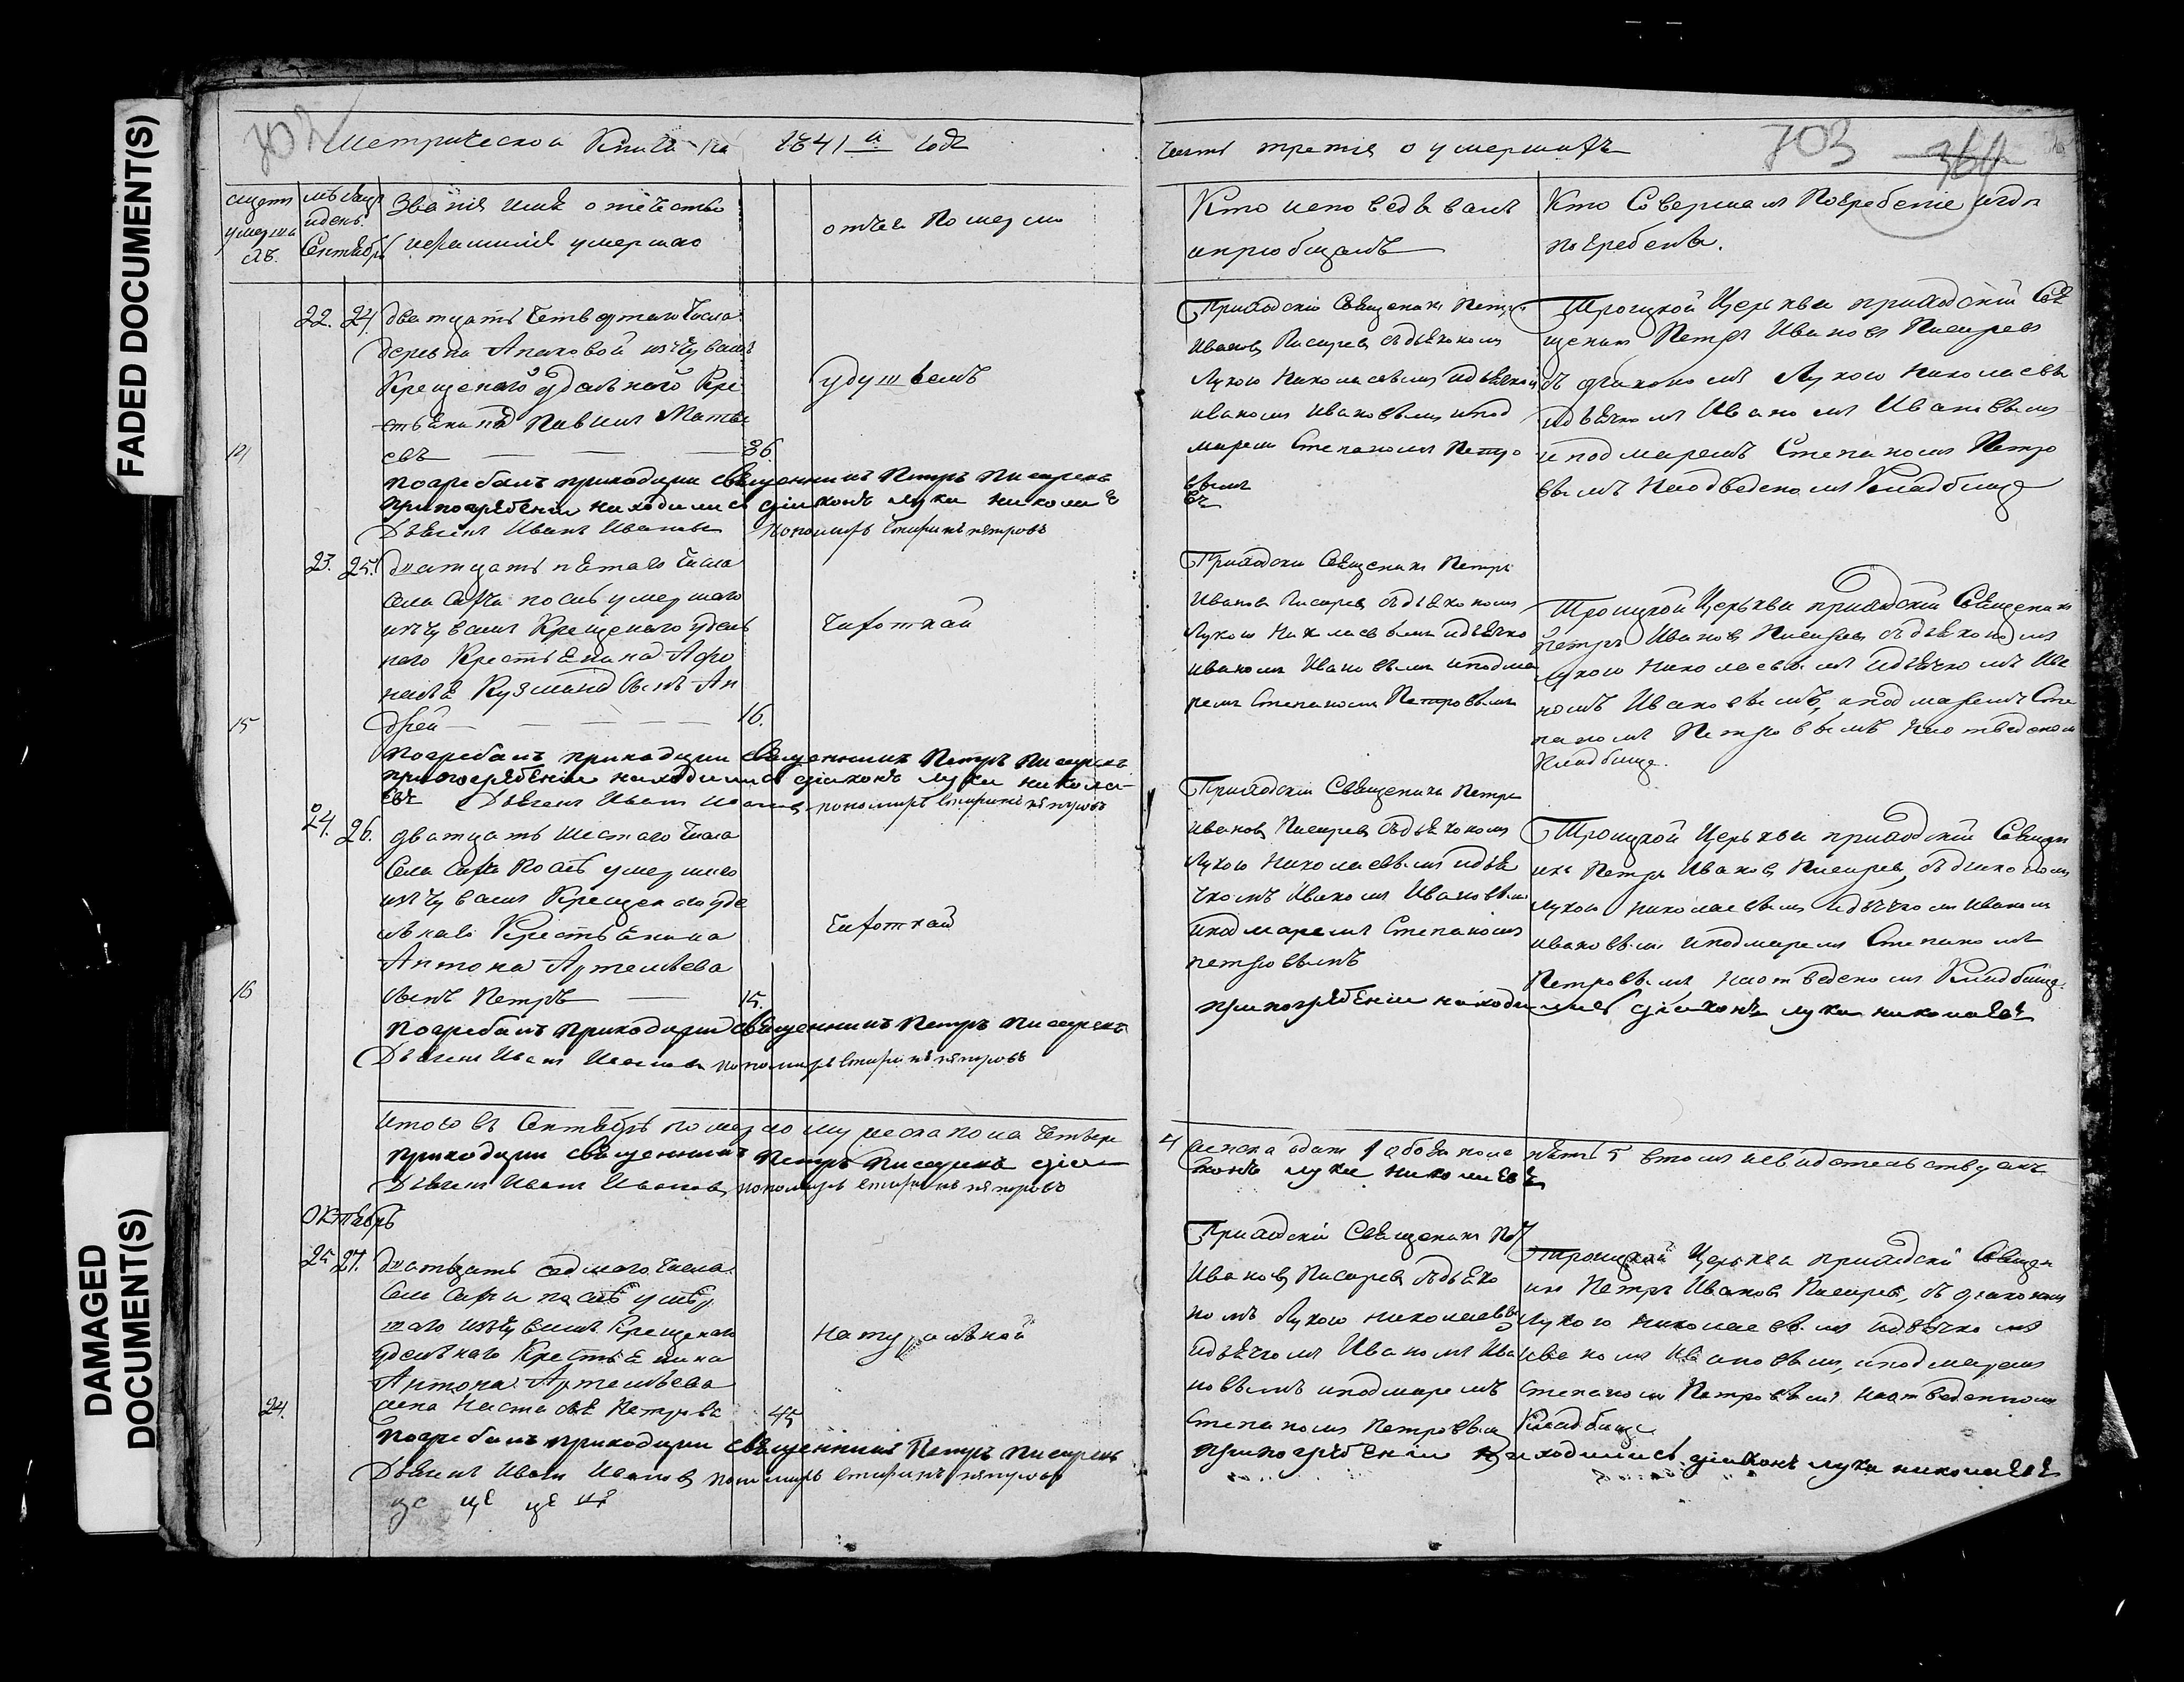 FADED DOCUMENT(S)
DAMAGED
DOCUMENT(S)
702
Метрической Книги на 1841й годъ
Звания имя отечество
и фамилия умершаго
Сентябрь
отчего померли
22. 24. дватцать четвертаго числа
деревни Апаковой изъ чувашъ
Крещенаго удельнаго Кре
стьянина Павила Матве
евъ 36.
удушьемъ
погребалъ приходции священникъ Петръ Писаревъ
при погрѣбении находился діяконъ лука никола
Дьячекъ Иванъ Ивановъ пономарь Стефанъ петровъ
23. 25. дватцать пятаго числа
села
изъ чувашъ Крещенаго удель
наго Крестьянина Афо
насья Кузмина сынъ Ан
15 дрей 16.
чахоткай
погребалъ приходции священникъ Петръ Писаревъ
при погрѣбении находился діяконъ лука никола
евъ Дьячекъ Иванъ Ивановъ пономарь Стефанъ петровъ
24. 26. дватцать шестаго числа
села
изъ чувашъ Крещенаго уде
льнаго Крестьянина
Антона Артемьева
16 сынъ Петръ 15.
чахоткай
погребалъ приходции священникъ Петръ Писаревъ
Дьячекъ Иванъ Ивановъ пономарь Стефанъ петровъ
итого въ Сентябрь померло мужеска пола четыре
приходции священникъ Петръ Писаревъ діа
Дьячекъ Иванъ Ивановъ пономарь Стефанъ петровъ
Октябрь
25 27. дватцать седмаго числа
села
изъ чувашъ Крещенаго
удельнаго Крестьянина
Антона Артемьева
24. жена Настасья Петрова 45
натуральной
погребалъ приходции священникъ Петръ Писаревъ
Дьячекъ Иванъ Ивановъ пономарь Стефанъ петровъ
часть третия о умершихъ
703
364
Кто исповедывалъ
и приобщалъ
Кто Совершалъ Погребение и где
погребены.
Приходскій Священикъ Петръ
Ивановъ Писаревъ съ дьякономъ
Лукою Николаевымъ и дьячкомъ
Иваномъ Ивановымъ и понд
марем Степаномъ Петро
вымъ
Троицкой Церькви приходскій Свя
щеникъ Петръ Ивановъ Писаревъ
съ диакономъ Лукою Николаевы
и дьячкомъ Иваномъ Ивановымъ
и пондмаремъ Степаномъ Петро
вымъ На отведеномъ Кладбище
Приходски Священикъ Петръ
Ивановъ Писаревъ съ дьякономъ
Лукою Николаевымъ и дьячко
Иваномъ Ивановымъ и пондма
ремъ Степаномъ Петровымъ
Троицкой Церькви приходскій Священикъ
Петръ Ивановъ Писаревъ съ дьякономъ
Лукою Николаевымъ и дьячкомъ Ива
номъ Ивановымъ, и пондмаремъ Сте
паномъ Петровымъ На отведеномъ
Кладбище.
Приходскій Священикъ Петръ
Ивановъ Писаревъ съ дьякономъ
Лукою Николаевымъ и дья
чкомъ Иваномъ Ивановымъ
и пондмаремъ Степаномъ
петровымъ
Троицкой Церькви приходскій Священ
икъ Петръ Ивановъ Писаревъ, съ диакономъ
Лукою Николаевымъ и дьячкомъ Иваномъ
Ивановымъ и пондмаремъ Степаномъ
Петровымъ На отведеномъ Кладбище.
при погрѣбении находился діяконъ лука николаевъ
4 женска 1 обоего пола пять 5 въ томъ и свидетельствуемъ
конъ лука николаевъ
Приходскій Священикъ
Ивановъ Писаревъ съ дьяко
номъ Лукою Николаевы
и дьячкомъ Иваномъ Ива
новымъ и пондмаремъ
Степаномъ Петровымъ
Троицкой Церькви приходскій Священ
икъ Петръ Ивановъ Писаревъ, съ диакономъ
Лукою Николаевымъ и дьячкомъ
Иваномъ Ивановымъ, и пондмаремъ
Степаномъ Петровымъ На отведенномъ
Кладбище
при погрѣбении находился діяконъ лука николаевъ